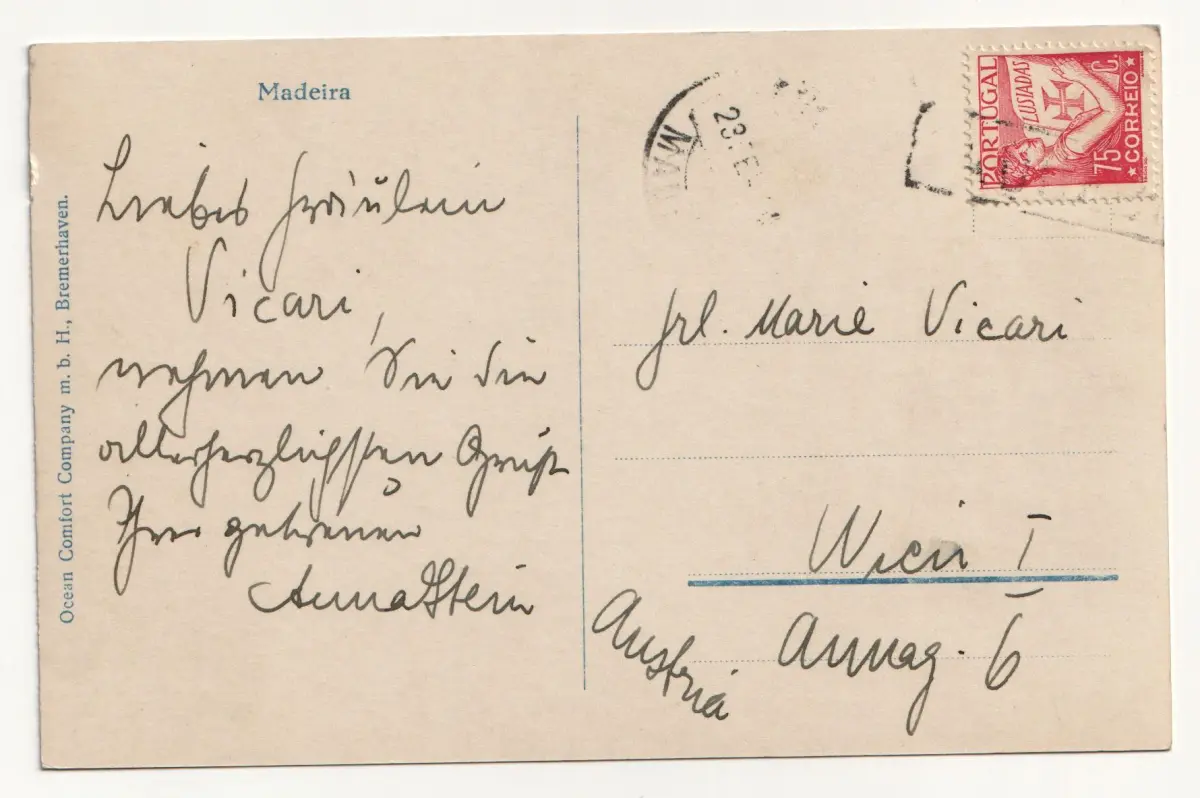 Madeira
Liebes Fräulein
Vicari,
nehmen Sie die
allerherzlichsten Grüße
Ihrer getreuen
Anna Stein
Ocean Comfort Company m. b. H., Bremerhaven.
23.
PORTUGAL
LUSIADAS
75 C.
CORREIO
Frl. Marie Vicari
Wien I
Annag. 6
Austria